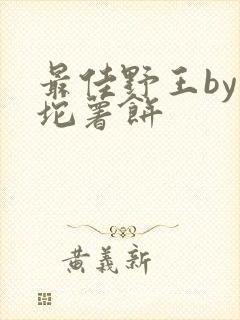 最佳野王by
坨薯餅
黄義新